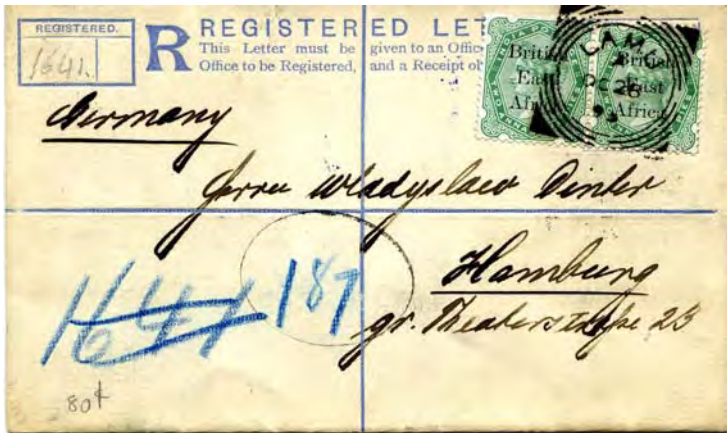 REGISTERED.
1641.
R
REGISTERED LET
This Letter must be given to an Offic
Office to be Registered, and a Receipt o
British
East
Africa
British
East
Africa
LAMU
26
Germany
Herrn Wladyslaw Dinter
Hamburg
gr. Theaterstraße 23
1641
187
80